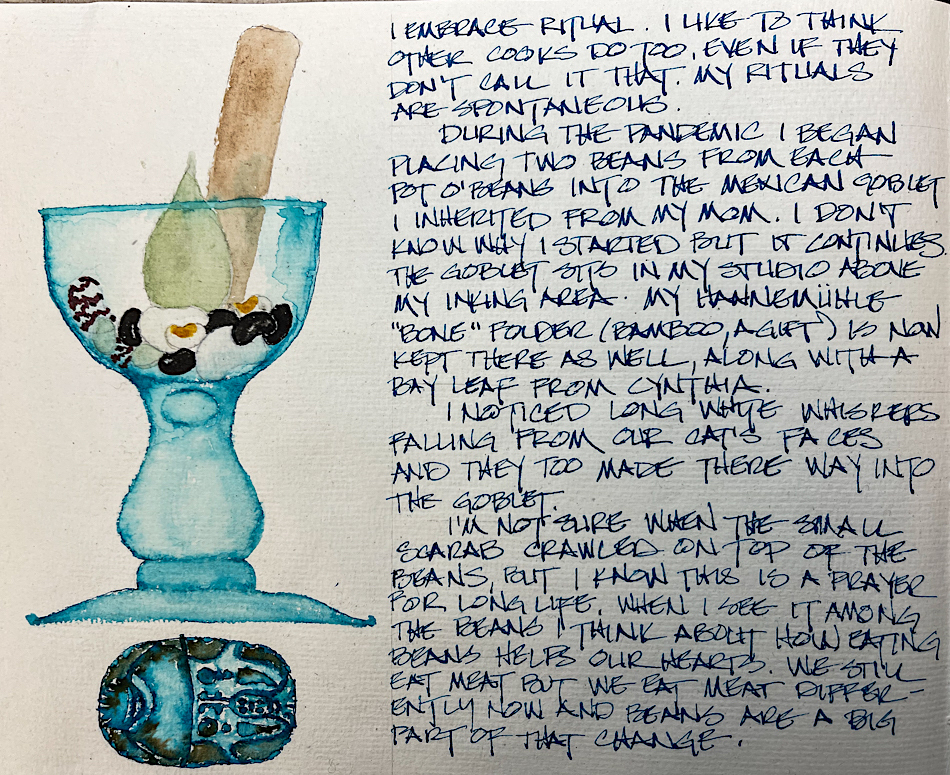 I EMBRACE RITUAL. I LIKE TO THINK
OTHER COOKS DO TOO, EVEN IF THEY
DON'T CALL IT THAT. MY RITUALS
ARE SPONTANEOUS.
DURING THE PANDEMIC I BEGAN
PLACING TWO BEANS FROM EACH
POT O'BEANS INTO THE MEXICAN GOBLET
I INHERITED FROM MY MOM. I DON'T
KNOW WHY I STARTED BUT IT CONTINUES.
THE GOBLET SITS IN MY STUDIO ABOVE
MY INKING AREA. MY HAHNEMÜHLE
"BONE" FOLDER (BAMBOO, A GIFT) IS NOW
KEPT THERE AS WELL, ALONG WITH A
BAY LEAF FROM CYNTHIA.
I NOTICED LONG WHITE WHISKERS
FALLING FROM OUR CAT'S FACES
AND THEY TOO MADE THERE WAY INTO
THE GOBLET.
I'M NOT SURE WHEN THE SMALL
SCARAB CRAWLED ON TOP OF THE
BEANS, BUT I KNOW THIS IS A PRAYER
FOR LONG LIFE. WHEN I SEE IT AMONG
THE BEANS I THINK ABOUT HOW EATING
BEANS HELPS OUR HEARTS. WE STILL
EAT MEAT BUT WE EAT MEAT DIFFER-
ENTLY NOW AND BEANS ARE A BIG
PART OF THAT CHANGE.